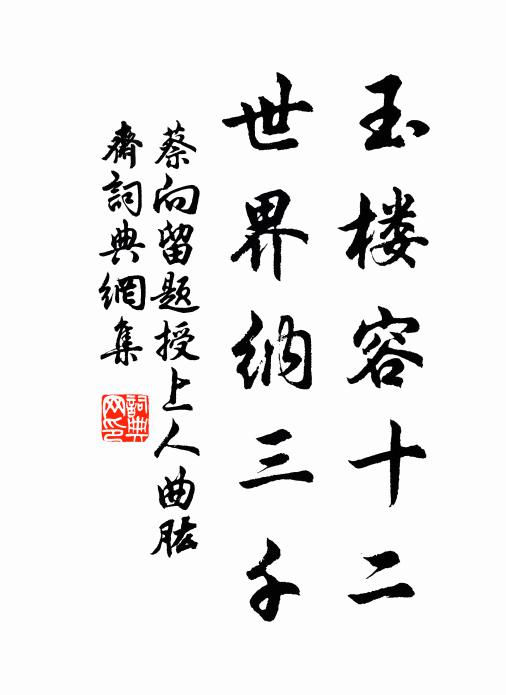 玉楼容十二
世界纳三千
蔡向留题授上人曲肱
齋詞典網集
詞典
网印